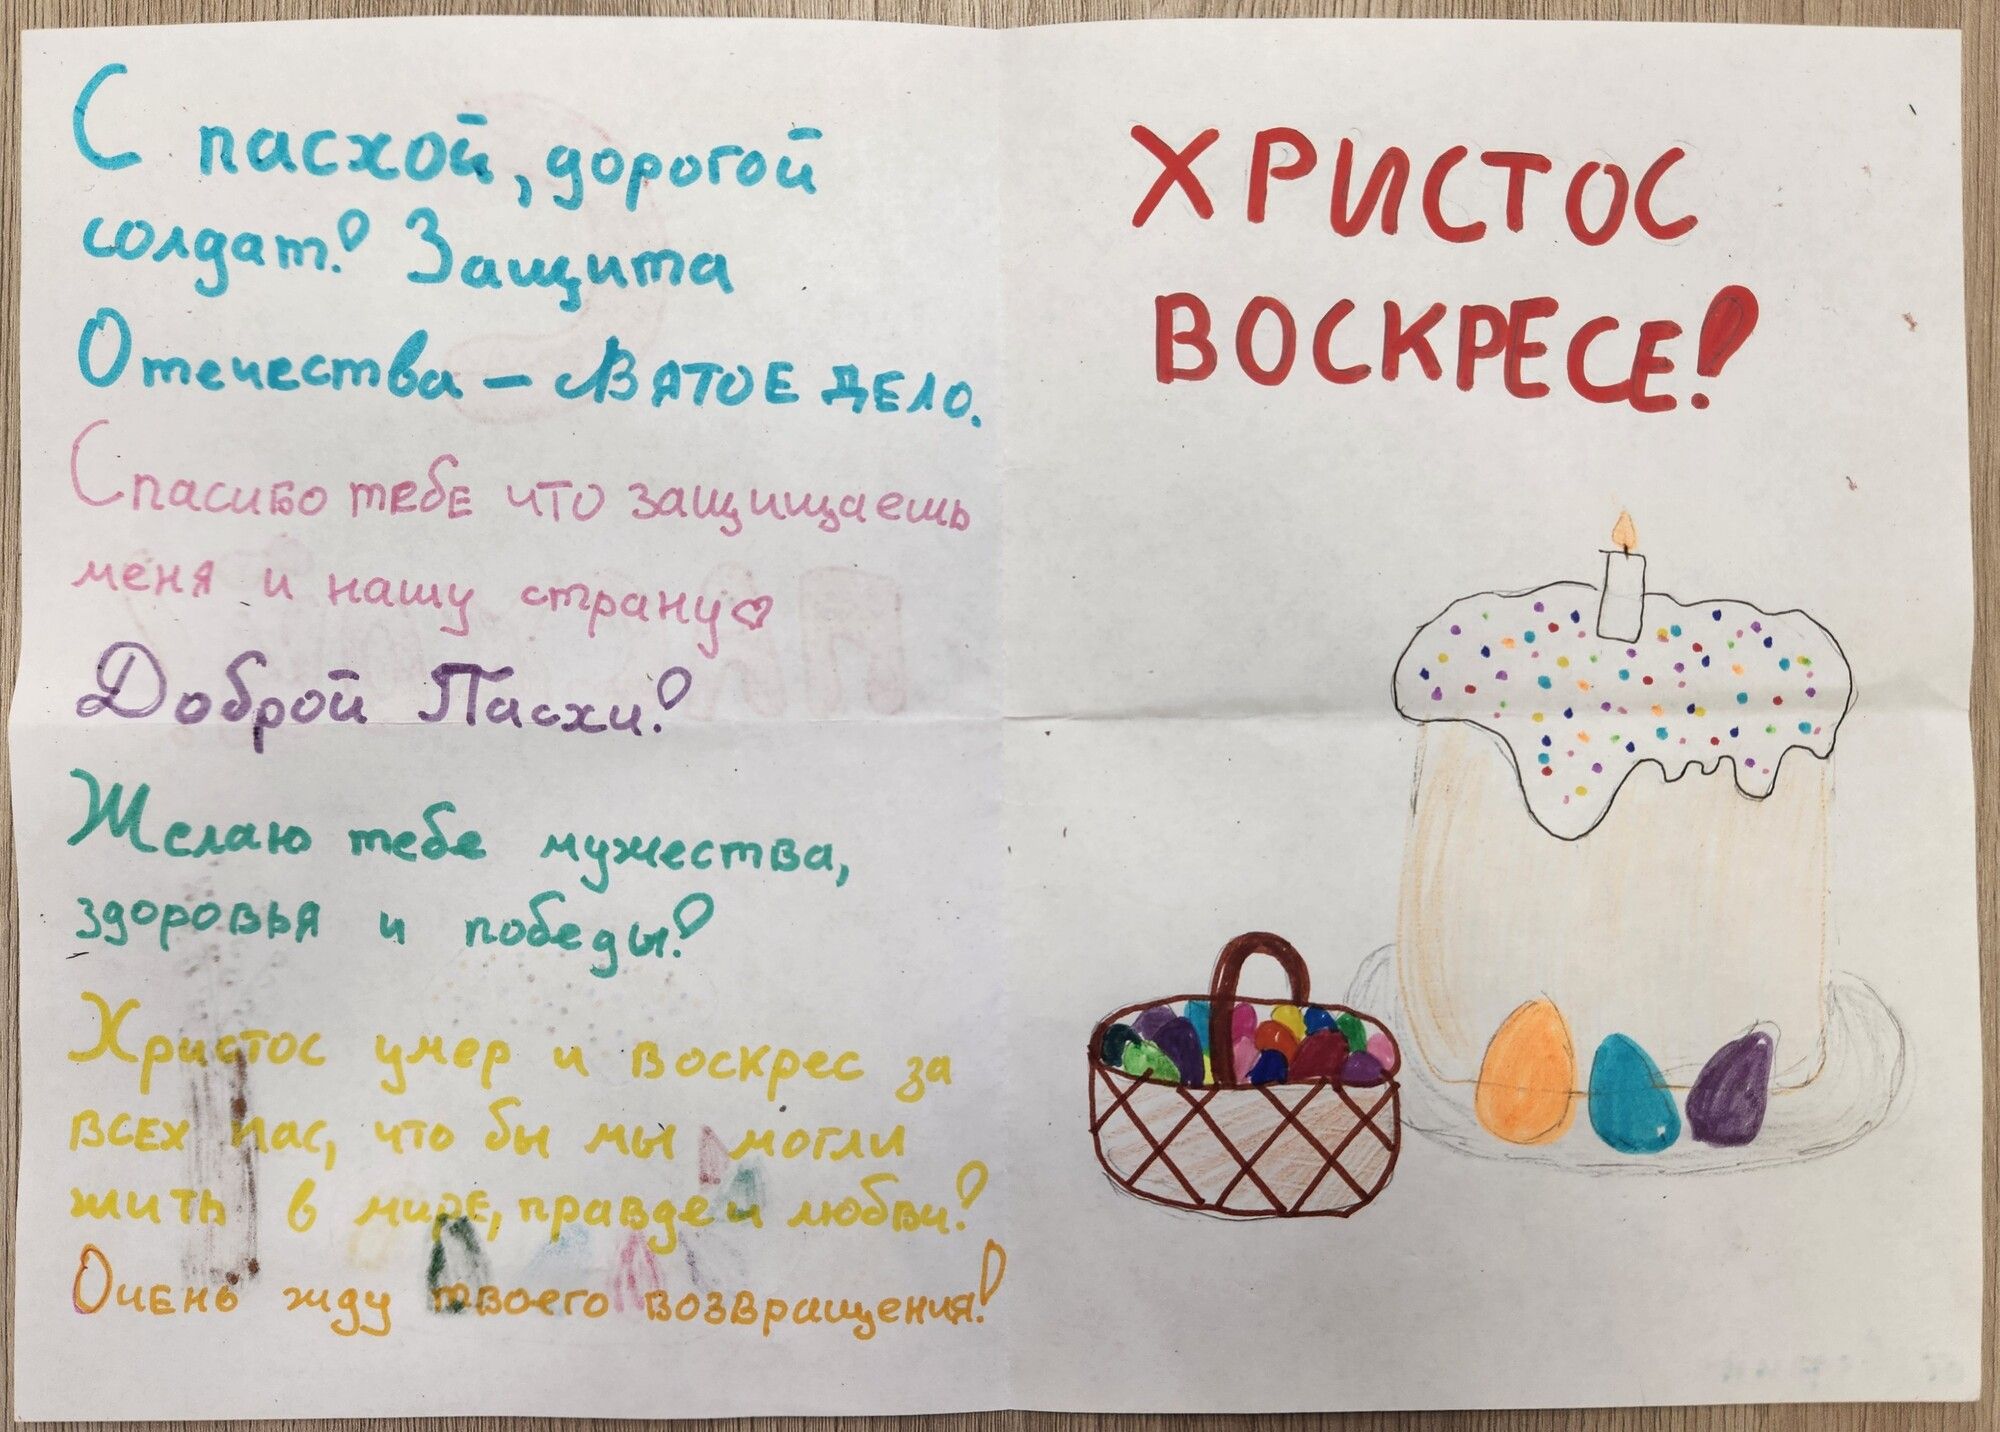 С пасхой, дорогой
солдат! Защита
Отечества – сВЯТОЕ ДЕЛО.
Спасибо тебе что защищаешь
меня и нашу страну♡
Доброй Пасхи!
Желаю тебе мужества,
здоровья и победы!
Христос умер и воскрес за
всех нас, что бы мы могли
жить в мире, правде и любви!
Очень жду твоего возвращения!
ХРИСТОС
ВОСКРЕСЕ!